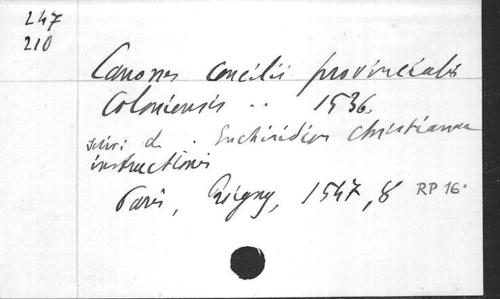 247
210
Canones concilii provincialis
Coloniensis .. 1536.
suivi de . Enchiridion christianae
instructionis
Paris, Regny, 1547, 8 RP 16.